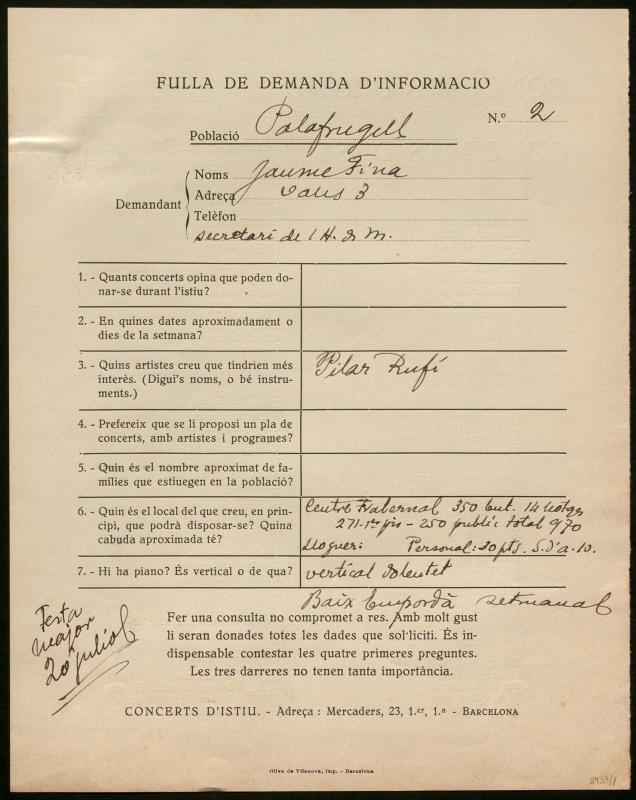 FULLA DE DEMANDA D'INFORMACIO
N.º 2
Població Palafrugell
Demandant
Noms Jaume Fina
Adreça Vaus 3
Telèfon
secretari de l H. de M.
1. - Quants concerts opina que poden do-
nar-se durant l'istiu?
2. - En quines dates aproximadament o
dies de la setmana?
3. - Quins artistes creu que tindrien més
interès. (Digui's noms, o bé instru-
ments.)
Pilar Rufí
4. - Prefereix que se li proposi un pla de
concerts, amb artistes i programes?
5. - Quin és el nombre aproximat de fa-
mílies que estiuegen en la població?
6. - Quin és el local del que creu, en prin-
cipi, que podrà disposar-se? Quina
cabuda aproximada té?
Centre Fraternal 350 but. 14 llotges
271-1er pis - 250 públic total 970
Lloguer: Personal: 30 pts. S. d'a. 10.
7. - Hi ha piano? És vertical o de qua?
vertical dolentet
Baix Empordà setmanal
Festa
major
20 juliol
Fer una consulta no compromet a res. Amb molt gust
li seran donades totes les dades que sol·liciti. És in-
dispensable contestar les quatre primeres preguntes.
Les tres darreres no tenen tanta importància.
CONCERTS D'ISTIU. - Adreça : Mercaders, 23, 1.er, 1.ª - BARCELONA
Oliva de Vilanova, imp. - Barcelona
8433/1